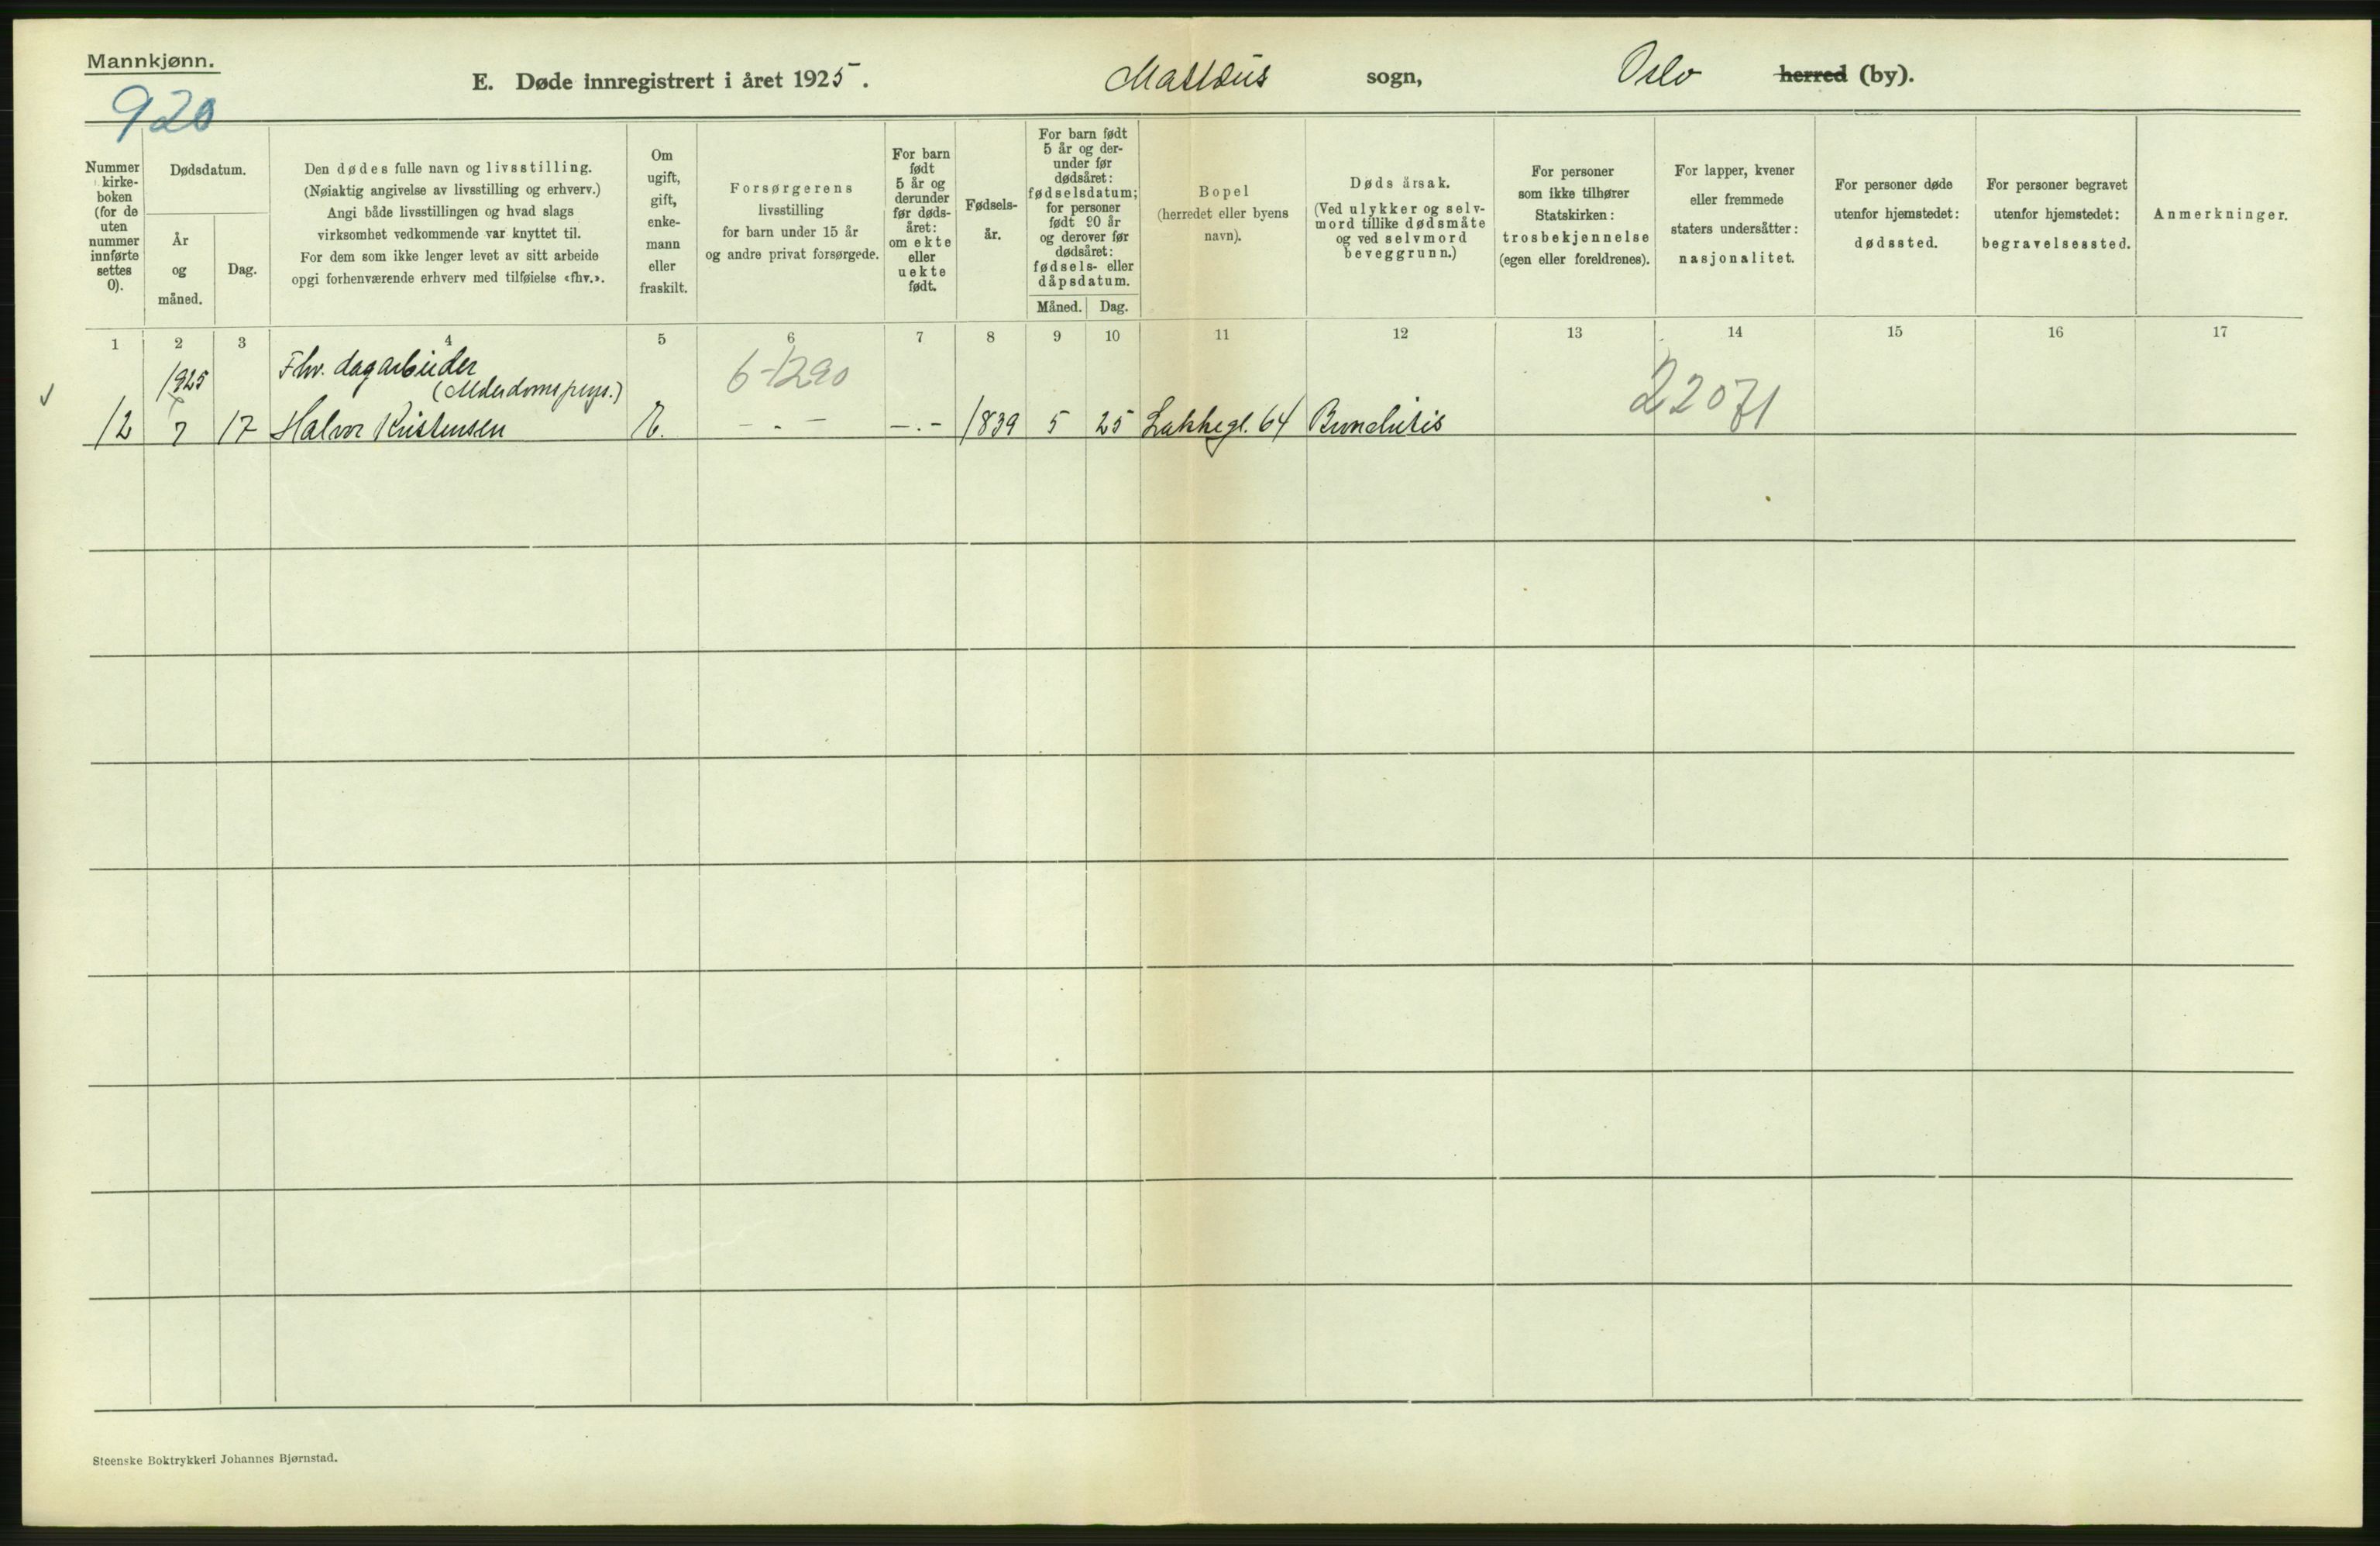 Mannkjønn.
920
E. Døde innregistrert i året 1925. Mattæus sogn, Oslo herred (by).
Nummer i kirke-boken (for de uten nummer innførte settes 0).
Dødsdatum.
År og måned.
Dag.
Den dødes fulle navn og livsstilling.
(Nøiaktig angivelse av livsstilling og erhverv.)
Angi både livsstillingen og hvad slags
virksomhet vedkommende var knyttet til.
For dem som ikke lenger levet av sitt arbeide
opgi forhenværende erhverv med tilføielse «fhv.».
Om ugift, gift, enke-mann eller fraskilt.
Forsørgerens
livsstilling
for barn under 15 år
og andre privat forsørgede.
For barn født 5 år og derunder før døds-året: om ekte eller uekte født.
Fødsels-år.
For barn født 5 år og der-under før dødsåret: fødselsdatum; for personer født 90 år og derover før dødsåret: fødsels- eller dåpsdatum.
Måned. Dag.
Bopel
(herredet eller byens
navn).
Dødsårsak.
(Ved ulykker og selv-
mord tillike dødsmåte
og ved selvmord
beveggrunn.)
For personer
som ikke tilhører
Statskirken:
trosbekjennelse
(egen eller foreldrenes).
For lapper, kvener
eller fremmede
staters undersåtter:
nasjonalitet.
For personer døde
utenfor hjemstedet:
dødssted.
For personer begravet
utenfor hjemstedet:
begravelsessted.
Anmerkninger.
1 2 3 4 5 6 7 8 9 10 11 12 13 14 15 16 17
1925 Fhv. dagarbeider 6-1290 22071
12 7 17 Halvor Kristensen E. - . - - . - 1839 5 25 Lakkegt. 64 Bronchitis
Steenske Boktrykkeri Johannes Bjørnstad.